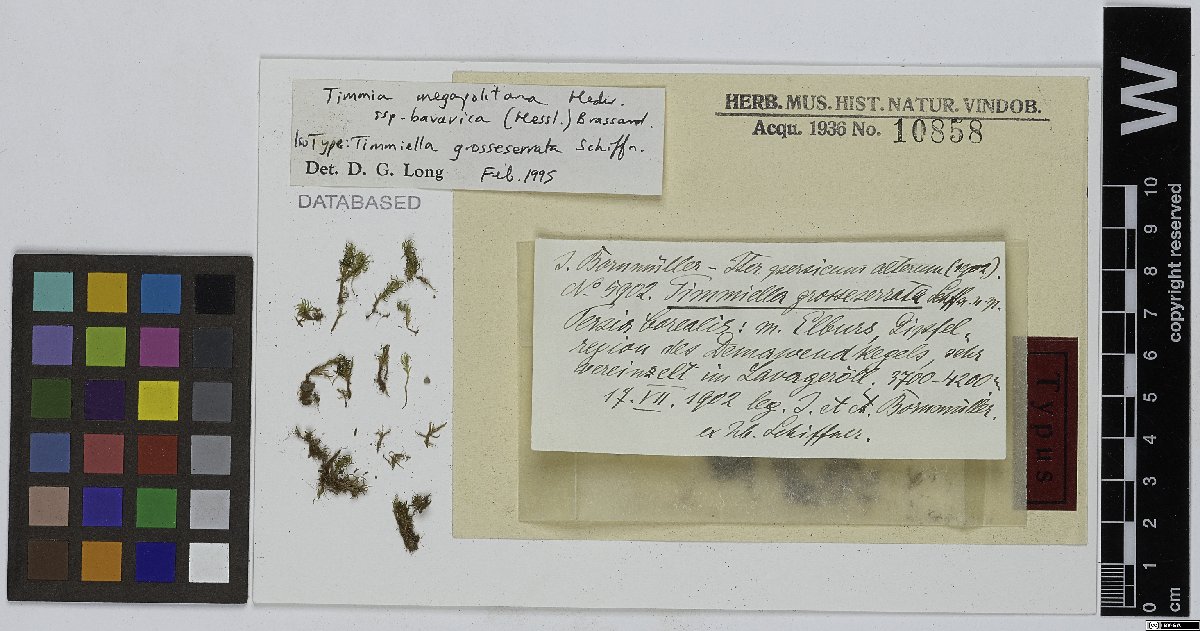 Timmia megapolitana Hedw.
ssp. bavarica (Hessl.) Brassard.
Iso Type: Timmiella grosseserrata Schiffn.
Det. D. G. Long Feb. 1995
DATABASED
HERB. MUS. HIST. NATUR. VINDOB.
Acqu. 1936 No. 10858
J. Bornmüller – Iter persicum alterum (1902).
No 4902. Timmiella grosseserrata Schffn. n. sp.
Persia borealis: m. Elburs, Gipfel-
region des Demawend Kegels, sehr
vereinzelt im Lavageröll. 3700–4200m
17. VII. 1902 leg. J. et A. Bornmüller.
ex hb. Schiffner.
Typus
W
copyright reserved
0 1 2 3 4 5 6 7 8 9 10
cm